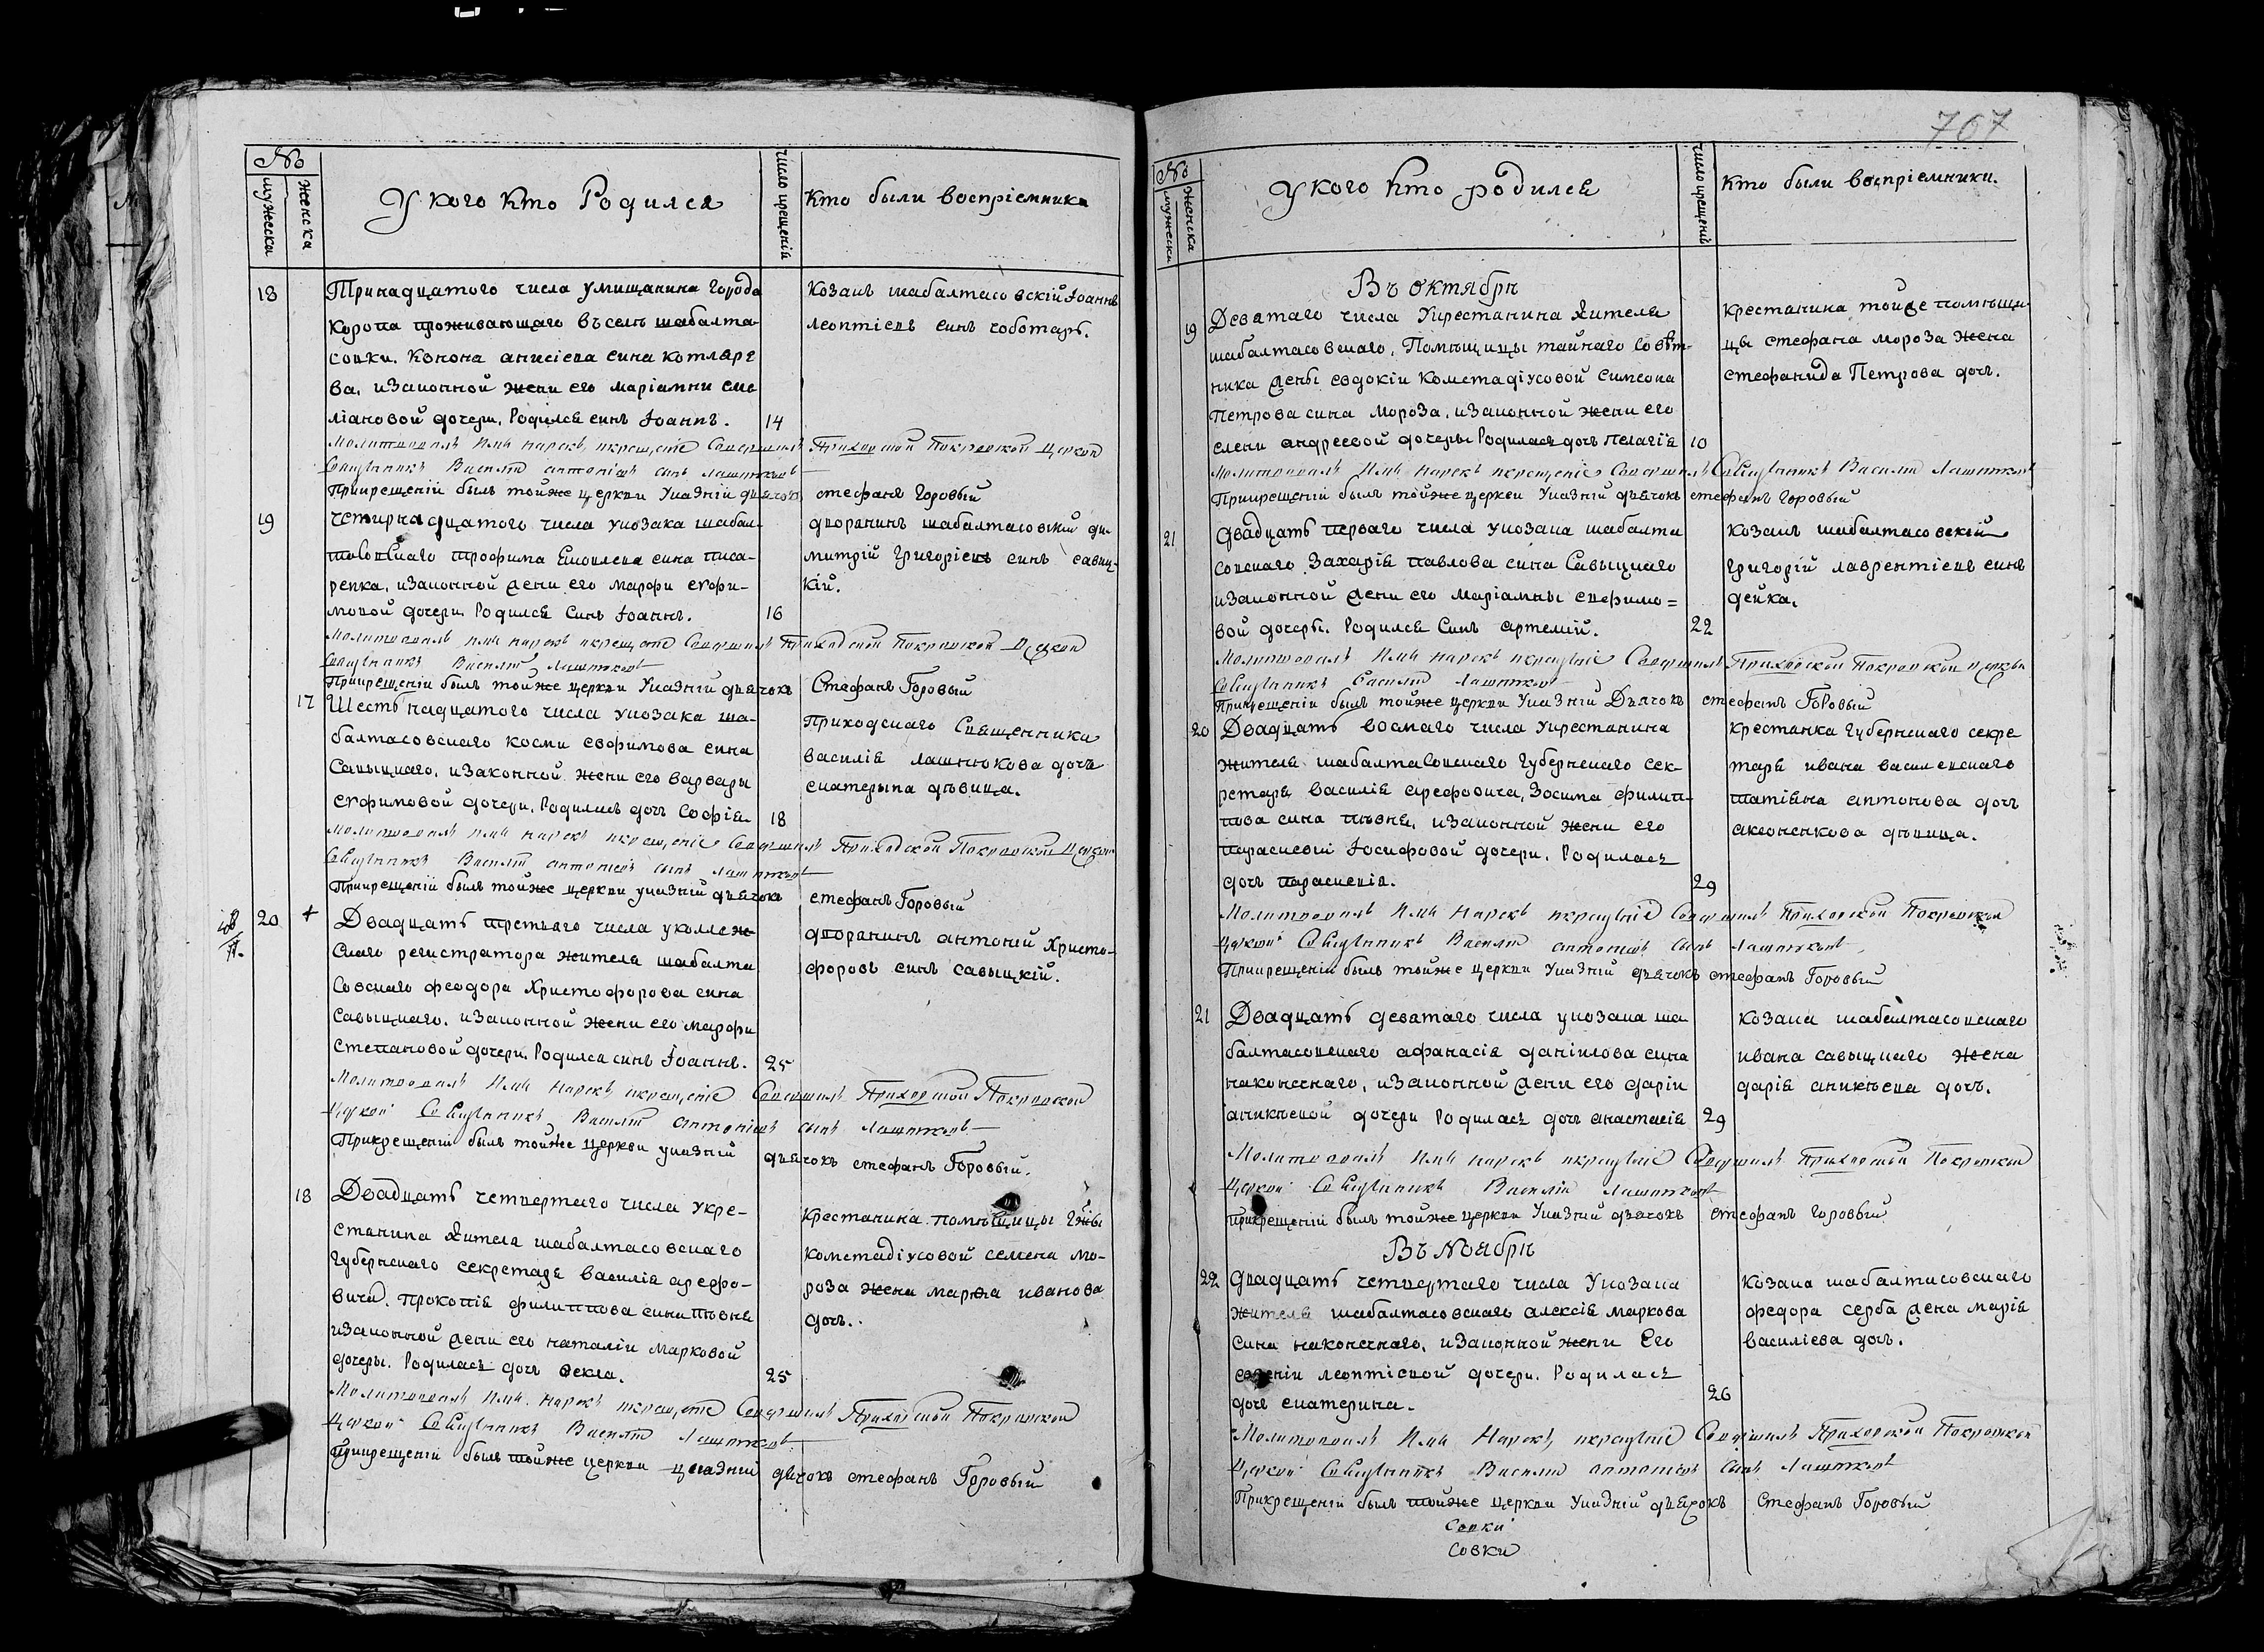 №
мужеска
женска
У кого кто Родился
число крещенія
Кто были воспріемники
18
Тринадцатого числа умищанина города
Коропа проживающаго въ селѣ шабалта-
совки. Конона анисіева сина котляре
ва, изаконной жени его маріамни еме
ліановой дочери, Родился синъ Іоаннъ.
14
Козакъ шабалтасовскій Іоаннъ
леонтіевъ синъ чоботарь.
Молитвовалъ имя нарекъ икрещеніе Совершилъ Приходской Покровской Церкви
Священникъ Василій антоніевъ сынъ Лашнюковъ
Прикрещеніи былъ тойже церкви Указній дьячокъ стефанъ Горовый
19
четирнадцатого числа укозака шабал-
товскаго трофима Емоилева сина писа-
ренка, изаконной жени его марфи ефи-
мовой дочери. Родился Синъ Іоаннъ.
16
дворанинъ шабалтасовскій ди-
митрій Григоріевъ синъ савиц-
кій.
Молитвовалъ имя нарекъ икрещеніе Совершилъ Приходской Покровской Церкви
Священникъ Василій Лашнюковъ
Прикрещеніи былъ тойже церкви Указній дьячокъ Стефанъ Горовый
17
Шестьнадцатого числа укозака ша-
балтасовскаго косми евфимова сина
Савыцкаго, изаконной жени его варвары
ефимовой дочери. Родилась дочь Софія.
18
Приходскаго Священника
василія лашнюкова дочь
екатерына дѣвица.
Молитвовалъ имя нарекъ икрещеніе Совершилъ Приходской Покровской Церкви
Священникъ Василій антоніевъ сынъ Лашнюковъ
Прикрещеніи былъ тойже церкви указній дьячокъ стефанъ Горовый
20 +
Двадцать третьаго числа уколлеж
скаго регистратора жителя шабалта
совскаго феодора Христофорова сина
Савыцкаго. изаконной жени его марфи
Степановой дочери. Родился синъ Іоаннъ.
25
дворанинъ антоній Христо-
форовъ синъ савыцкій.
Молитвовалъ Имя нарекъ икрещеніе Совершилъ Приходской Покровской
Церкви Священникъ Василій антоніевъ сынъ Лашнюковъ
Прикрещеніи былъ тойже церкви указній дьячокъ стефанъ Горовый.
18
Двадцать четвертаго числа укре-
станина жителя шабалтасовскаго
Губернскаго секретаря василія арефо-
вича. Прокопія филиппова сина пѣвня
изаконной жени его наталіи Марковой
дочеры. Родилась дочь Ѳекла.
25
Крестанина помѣщицы Гжи
комстадіусовой семена мо-
роза жена марѳа иванова
дочь.
Молитвовалъ Имя нарекъ икрещеніе Совершилъ Приходской Покровской
Церкви Священникъ Василій Лашнюковъ
Прикрещеніи былъ тойже церкви указній дьячокъ стефанъ Горовый
707
№
мужеска
Женска
У кого кто родился
число крещеній
Кто были воспріемники.
Въ октябрѣ
19
Деватаго числа Укрестанина жителя
шабалтасовскаго, Помѣщицы тайнаго Совѣт-
ника жены евдокіи Комстадіусовой Симеона
Петрова сина мороза, изаконной жени его
елени андреевой дочеры Родилась дочь Пелагія
10
Крестанина тойже помѣщи-
цы стефана мороза жена
стефанида Петрова дочь.
Молитвовалъ Имя нарекъ икрещеніе Совершилъ Священникъ Василій Лашнюковъ
Прикрещеніи былъ тойже церкви Указній дьячокъ стефанъ Горовый
21
двадцать перваго числа укозака шабалта
совскаго Захарія павлова сина Савыцкаго
изаконной жени его маріамны евфимо=
вой дочеры. Родился Синъ артемій.
22
Козакъ шабалтасовскій
Григорій лаврентіевъ синъ
дейка.
Молитвовалъ Имя нарекъ икрещеніе Совершилъ Приходской Покровской церкви
Священникъ Василій Лашнюковъ
Прикрещеніи былъ тойже церкви Указній Дьячокъ стефанъ Горовый
20
Двадцать восмаго числа Укрестанина
жителя шабалтасовскаго Губернскаго сек-
ретаря василія арефовича, Зосима филип-
пова сина пѣвня, изаконной жени его
параскевіи Іосифовой дочери. Родилась
дочь параскевія.
29
крестанка Губернскаго секре
таря ивана василевскаго
татіана антонова дочь
аксоненкова дѣвица.
Молитвовалъ Имя нарекъ икрещеніе Совершилъ Приходской Покровской
Церкви Священникъ Василій антоніевъ сынъ Лашнюковъ
Прикрещеніи былъ тойже церкви Указній дьячокъ стефанъ Горовый
21
Двадцать деватаго числа укозака ша-
балтасовскаго афанасія даніилова сина
наконечнаго, изаконной жени его даріи
аникѣевой дочери Родилась дочь анастасія
29
козака шабалтасовскаго
ивана савыцкаго жена
дарія аникѣева дочь.
Молитвовалъ Имя нарекъ икрещеніе Совершилъ Приходской Покровской
Церкви Священникъ Василій Лашнюковъ
Прикрещеній былъ тойже церкви Указній дьячокъ стефанъ Горовый
Въ Ноябрѣ
22
двадцать четвертаго числа Укозака
жителя шабалтасовскаго алексія маркова
сина наконечнаго, изаконной жени Его
леонтіевой дочери. Родилась
дочь екатерина.
26
Козака шабалтасовскаго
федора серба жена марія
василіева дочь.
Молитвовалъ Имя Нарекъ, икрещеніе Совершилъ Приходской Покровской
Церкви Священникъ Василій антоніевъ сынъ Лашнюковъ
Прикрещеніи былъ тойже церкви Указній дьячокъ Стефанъ Горовый
совки
совки